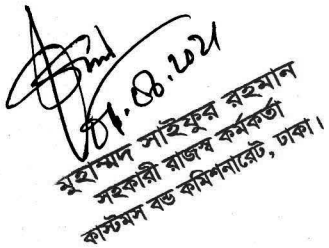 ০১.০৮.২০২১
মুহাম্মদ সাইফুর রহমান
সহকারী রাজস্ব কর্মকর্তা
কাস্টমস বন্ড কমিশনারেট, ঢাকা।